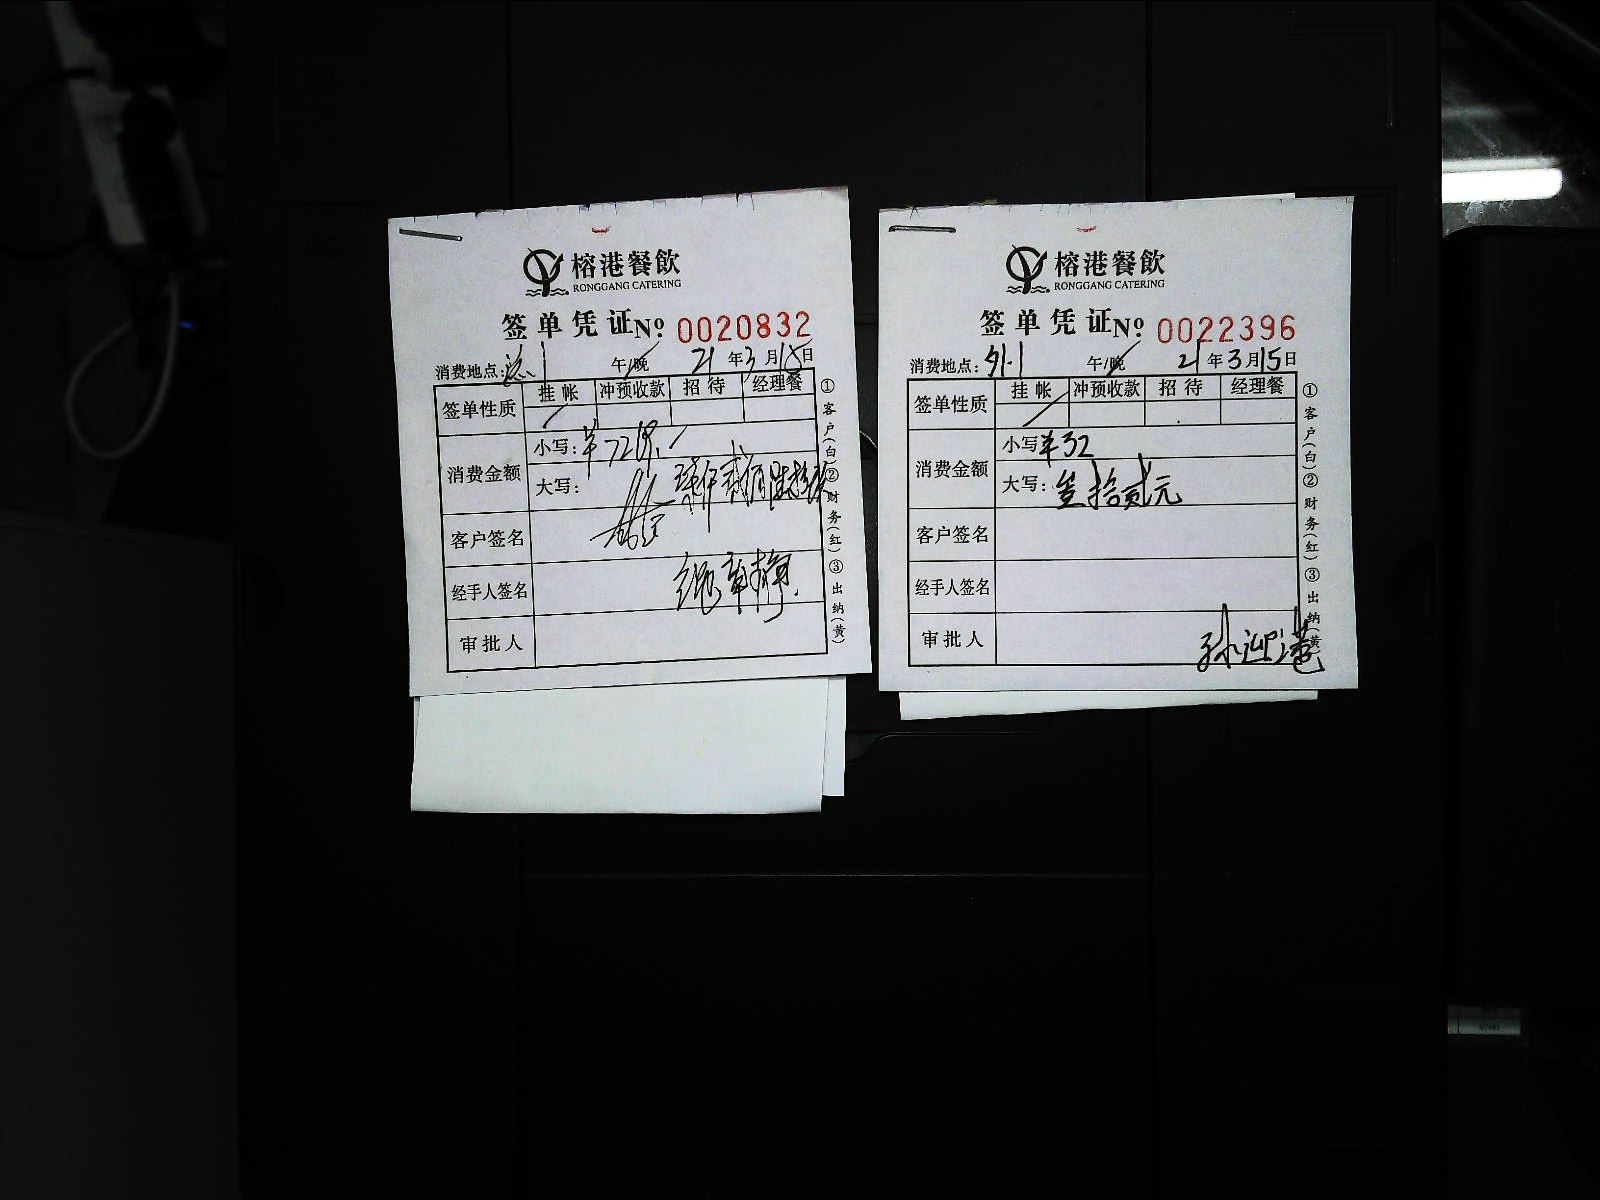 榕港餐飲
RONGGANG CATERING
签单凭证 № 0020832
消费地点: 午/晚 21年3月15日
签单性质 挂帐 冲预收款 招待 经理餐
消费金额 小写:
大写:
客户签名
经手人签名
审批人
①客户(白)②财务(红)③出纳(黄)
榕港餐飲
RONGGANG CATERING
签单凭证 № 0022396
消费地点: 外1 午/晚 21年3月15日
签单性质 挂帐 冲预收款 招待 经理餐
消费金额 小写 ¥32
大写: 叁拾贰元
客户签名
经手人签名
审批人 孙迎港
①客户(白)②财务(红)③出纳(黄)